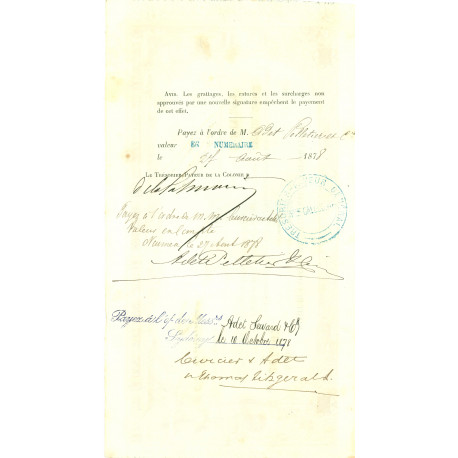 Avis. Les grattages, les ratures et les surcharges non
approuvés par une nouvelle signature empêchent le payement
de cet effet.
Payez à l'ordre de M. Adet Pelletier & Cie
valeur EN NUMERAIRE
le 27 août 1878
Le Trésorier-Payeur de la Colonie,
Payez à l'ordre de M.M.
Valeur en compte
Noumea le 27 Aout 1878
Adet Pelletier & Cie
Payez à l'o/ de Adet Savard & Co
Sydney le 10 Octobre 1878
Cuvier & Adet
Thomas Fitzgerald